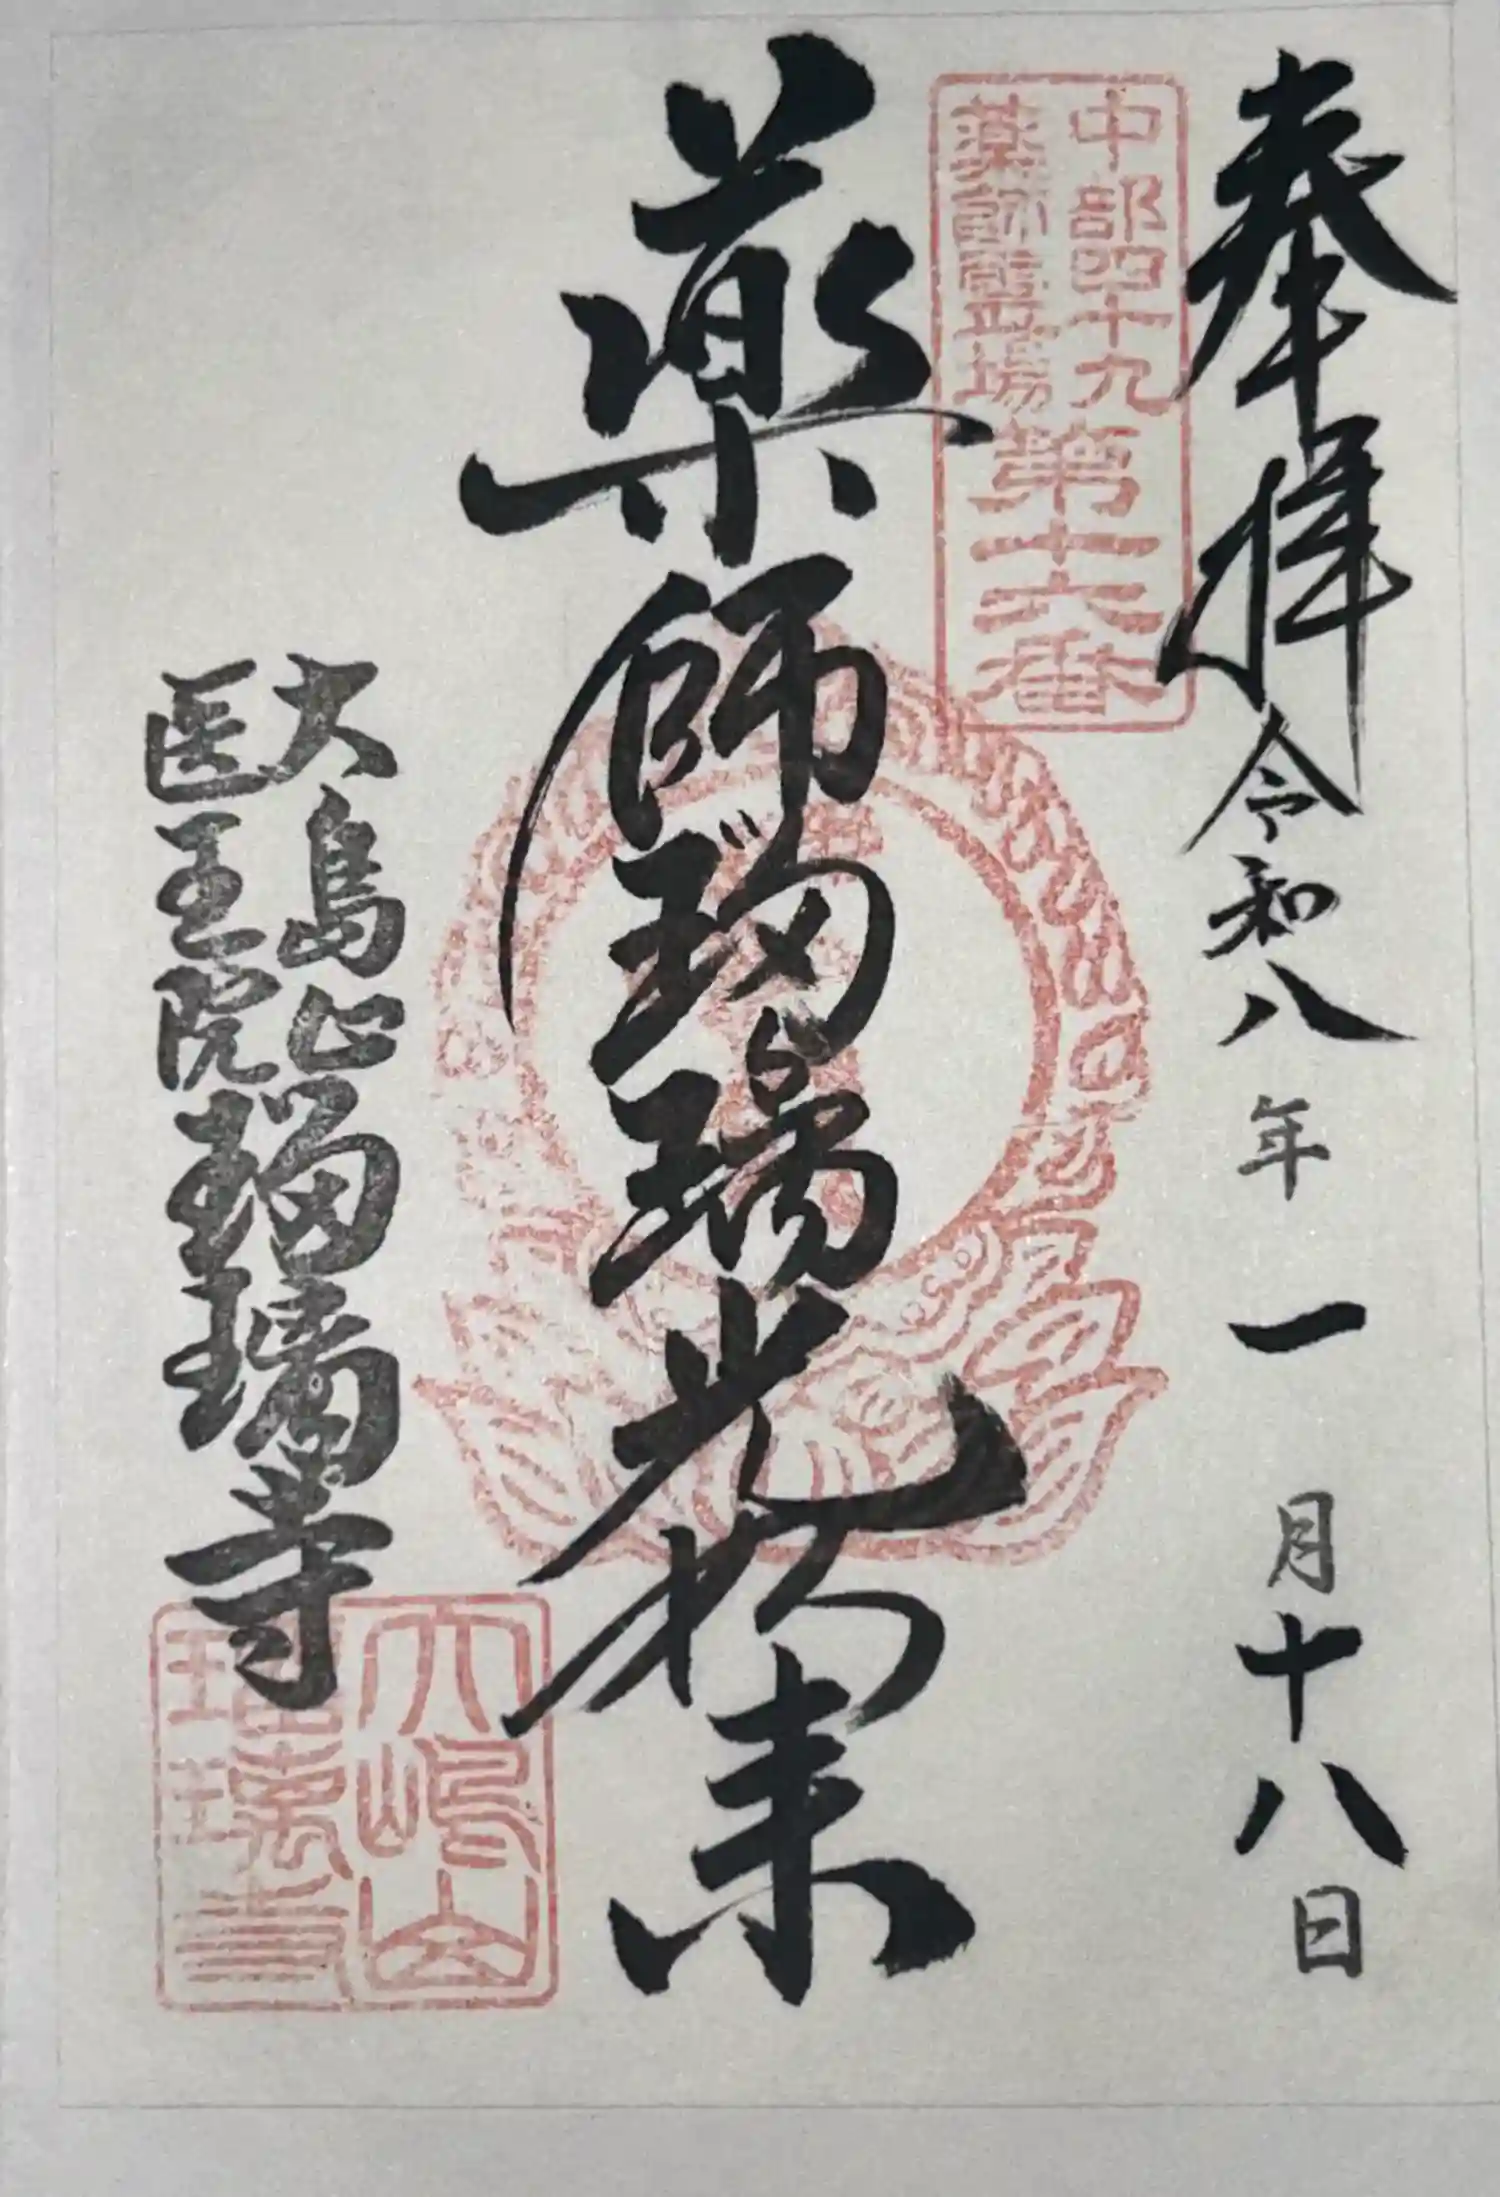 奉拝 令和八年一月十八日
中部四十九
薬師霊場
第十六番
薬師瑠璃光如来
大島山
医王院
瑠璃寺
大嶋山
瑠璃寺